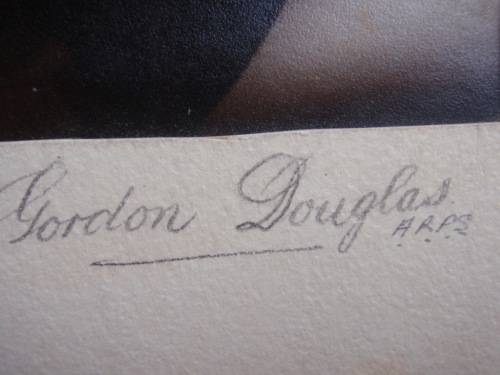 Gordon Douglas
A.R.P.S